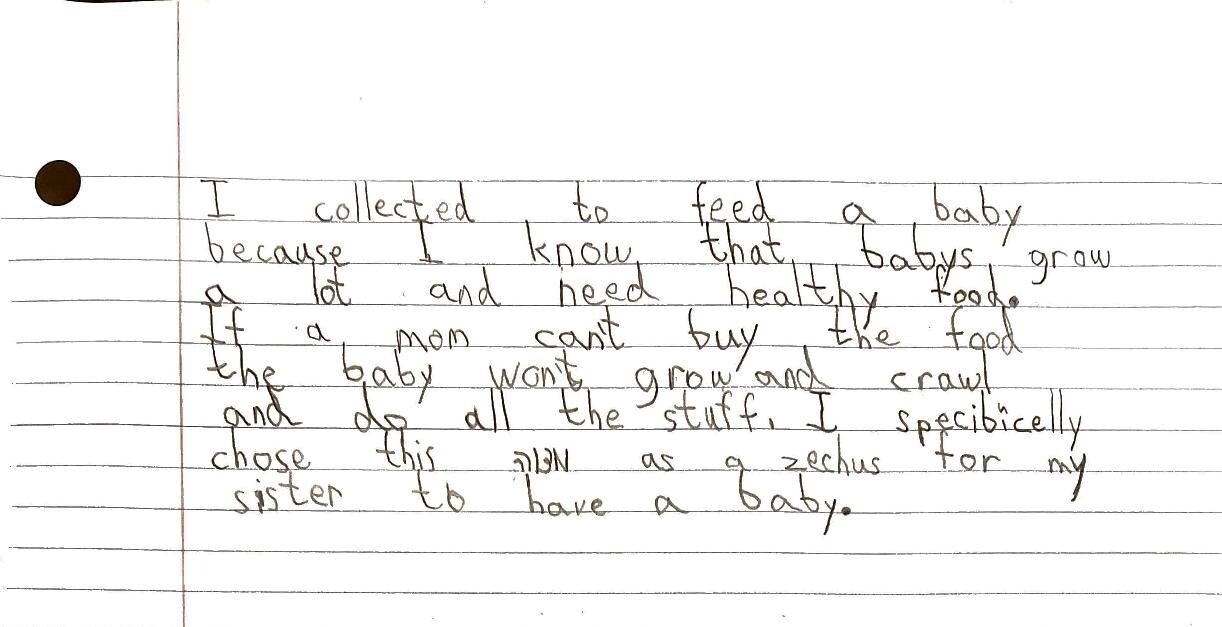 I collected to feed a baby
because I know that babys grow
a lot and need healthy food.
If a mom can't buy the food
the baby won't grow and crawl
and do all the stuff. I specibicelly
chose this מצוה as a zechus for my
sister to have a baby.